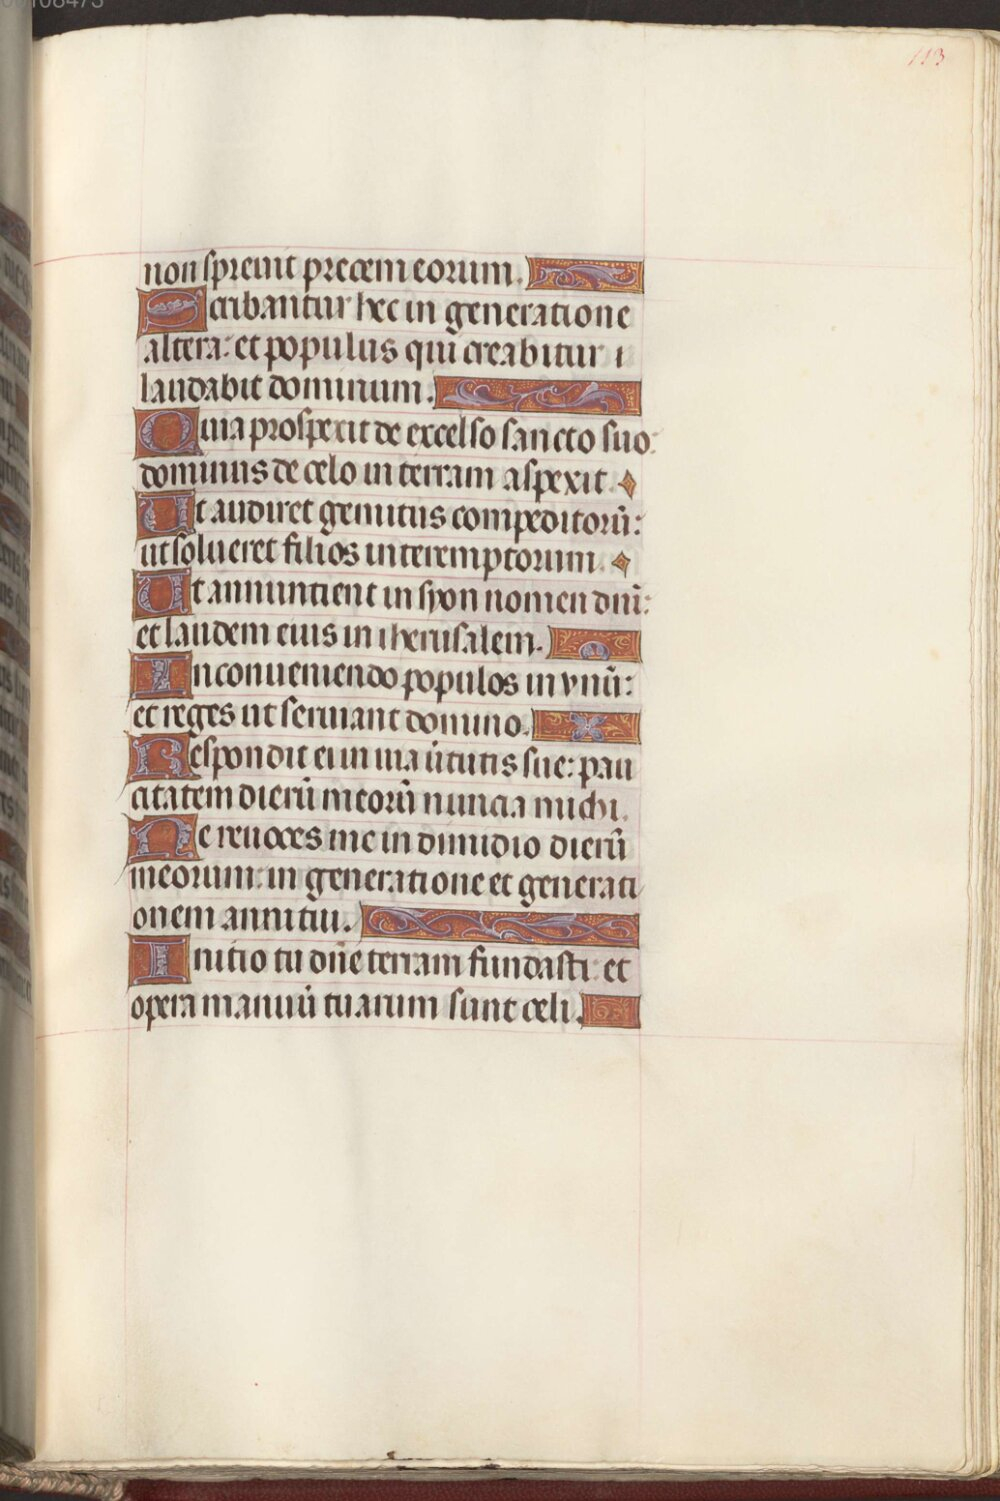 113
non spreuit precem eorum.
Scribantur hec in generatione
altera: et populus qui creabitur
laudabit dominum.
Quia prospexit de excelso sancto suo:
dominus de celo in terram aspexit.
Ut audiret gemitus compeditorū:
ut solueret filios interemptorum.
Ut annuntient in syon nomen dnī:
et laudem eius in iherusalem.
In conueniendo populos in vnū:
et reges ut seruiant domino.
Respondit ei in uia ūtutis sue: pau
citatem dierū meorū nuncia michi.
Ne reuoces me in dimidio dierū
meorum: in generatione et generati
onem anni tui.
Initio tu dn̄e terram fundasti: et
opera manuū tuarum sunt celi.